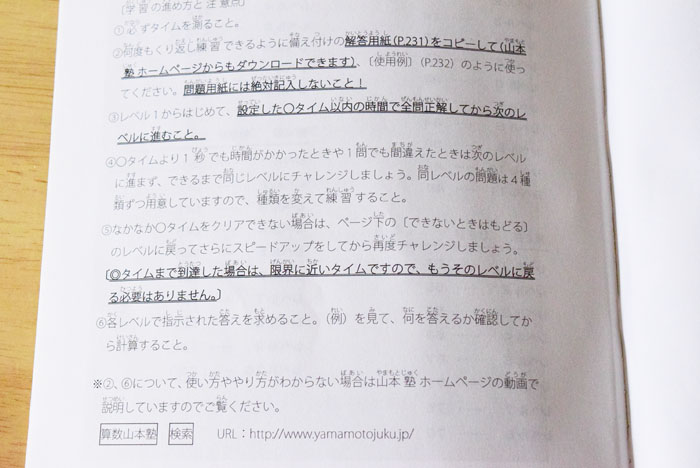 [学習の進め方と注意点]
①必ずタイムを測ること。
②何度もくり返し練習できるように備え付けの解答用紙(P.231)をコピーして(山本
塾ホームページからもダウンロードできます)、〔使用例〕(P.232)のように使っ
てください。問題用紙には絶対記入しないこと！
③レベル1からはじめて、設定した〇タイム以内の時間で全問正解してから次のレ
ベルに進むこと。
④〇タイムより1秒でも時間がかかったときや1問でも間違えたときは次のレベル
に進まず、できるまで同じレベルにチャレンジしましょう。同レベルの問題は4種
類ずつ用意していますので、種類を変えて練習すること。
⑤なかなか〇タイムをクリアできない場合は、ページ下の〔できないときはもどる〕
のレベルに戻ってさらにスピードアップをしてから再度チャレンジしましょう。
〔◎タイムまで到達した場合は、限界に近いタイムですので、もうそのレベルに戻
る必要はありません。〕
⑥各レベルで指示された答えを求めること。(例)を見て、何を答えるか確認してか
ら計算すること。
※②、⑥について、使い方ややり方がわからない場合は山本塾ホームページの動画で
説明していますのでご覧ください。
算数山本塾 検索 URL：http://www.yamamotojuku.jp/